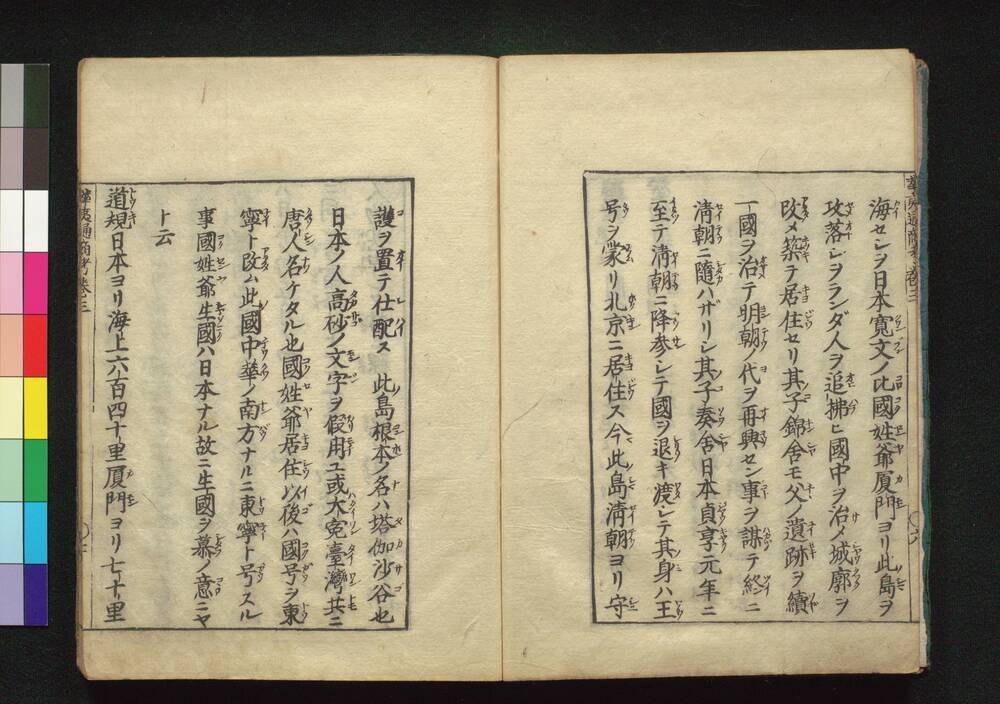 海セシヲ日本寛文ノ比國姓爺厦門ヨリ此島ヲ
攻落シヲランダ人ヲ追拂ヒ國中ヲ治メ城廓ヲ
改メ築テ居住セリ其子錦舎モ父ノ遺跡ヲ續
一國ヲ治テ明朝ノ代ヲ再興セン事ヲ謀テ終ニ
清朝ニ隨ハザリシ其子奏舎日本貞享元年ニ
至テ清朝ニ降参シテ國ヲ退キ渡シテ其身ハ王
号ヲ蒙リ北京ニ居住ス今此島清朝ヨリ守
護ヲ置テ仕配ス 此島根本ノ名ハ塔伽沙谷也
日本ノ人高砂ノ文字ヲ假用ユ或大寃臺灣共ニ
唐人名ケタル也國姓爺居住以後ハ國号ヲ東
寧ト改ム此國中華ノ南方ナルニ東寧ト号スル
事國姓爺生國ハ日本ナル故ニ生國ヲ慕ノ意ニヤ
ト云
道規日本ヨリ海上六百四十里厦門ヨリ七十里
華夷通商考巻三